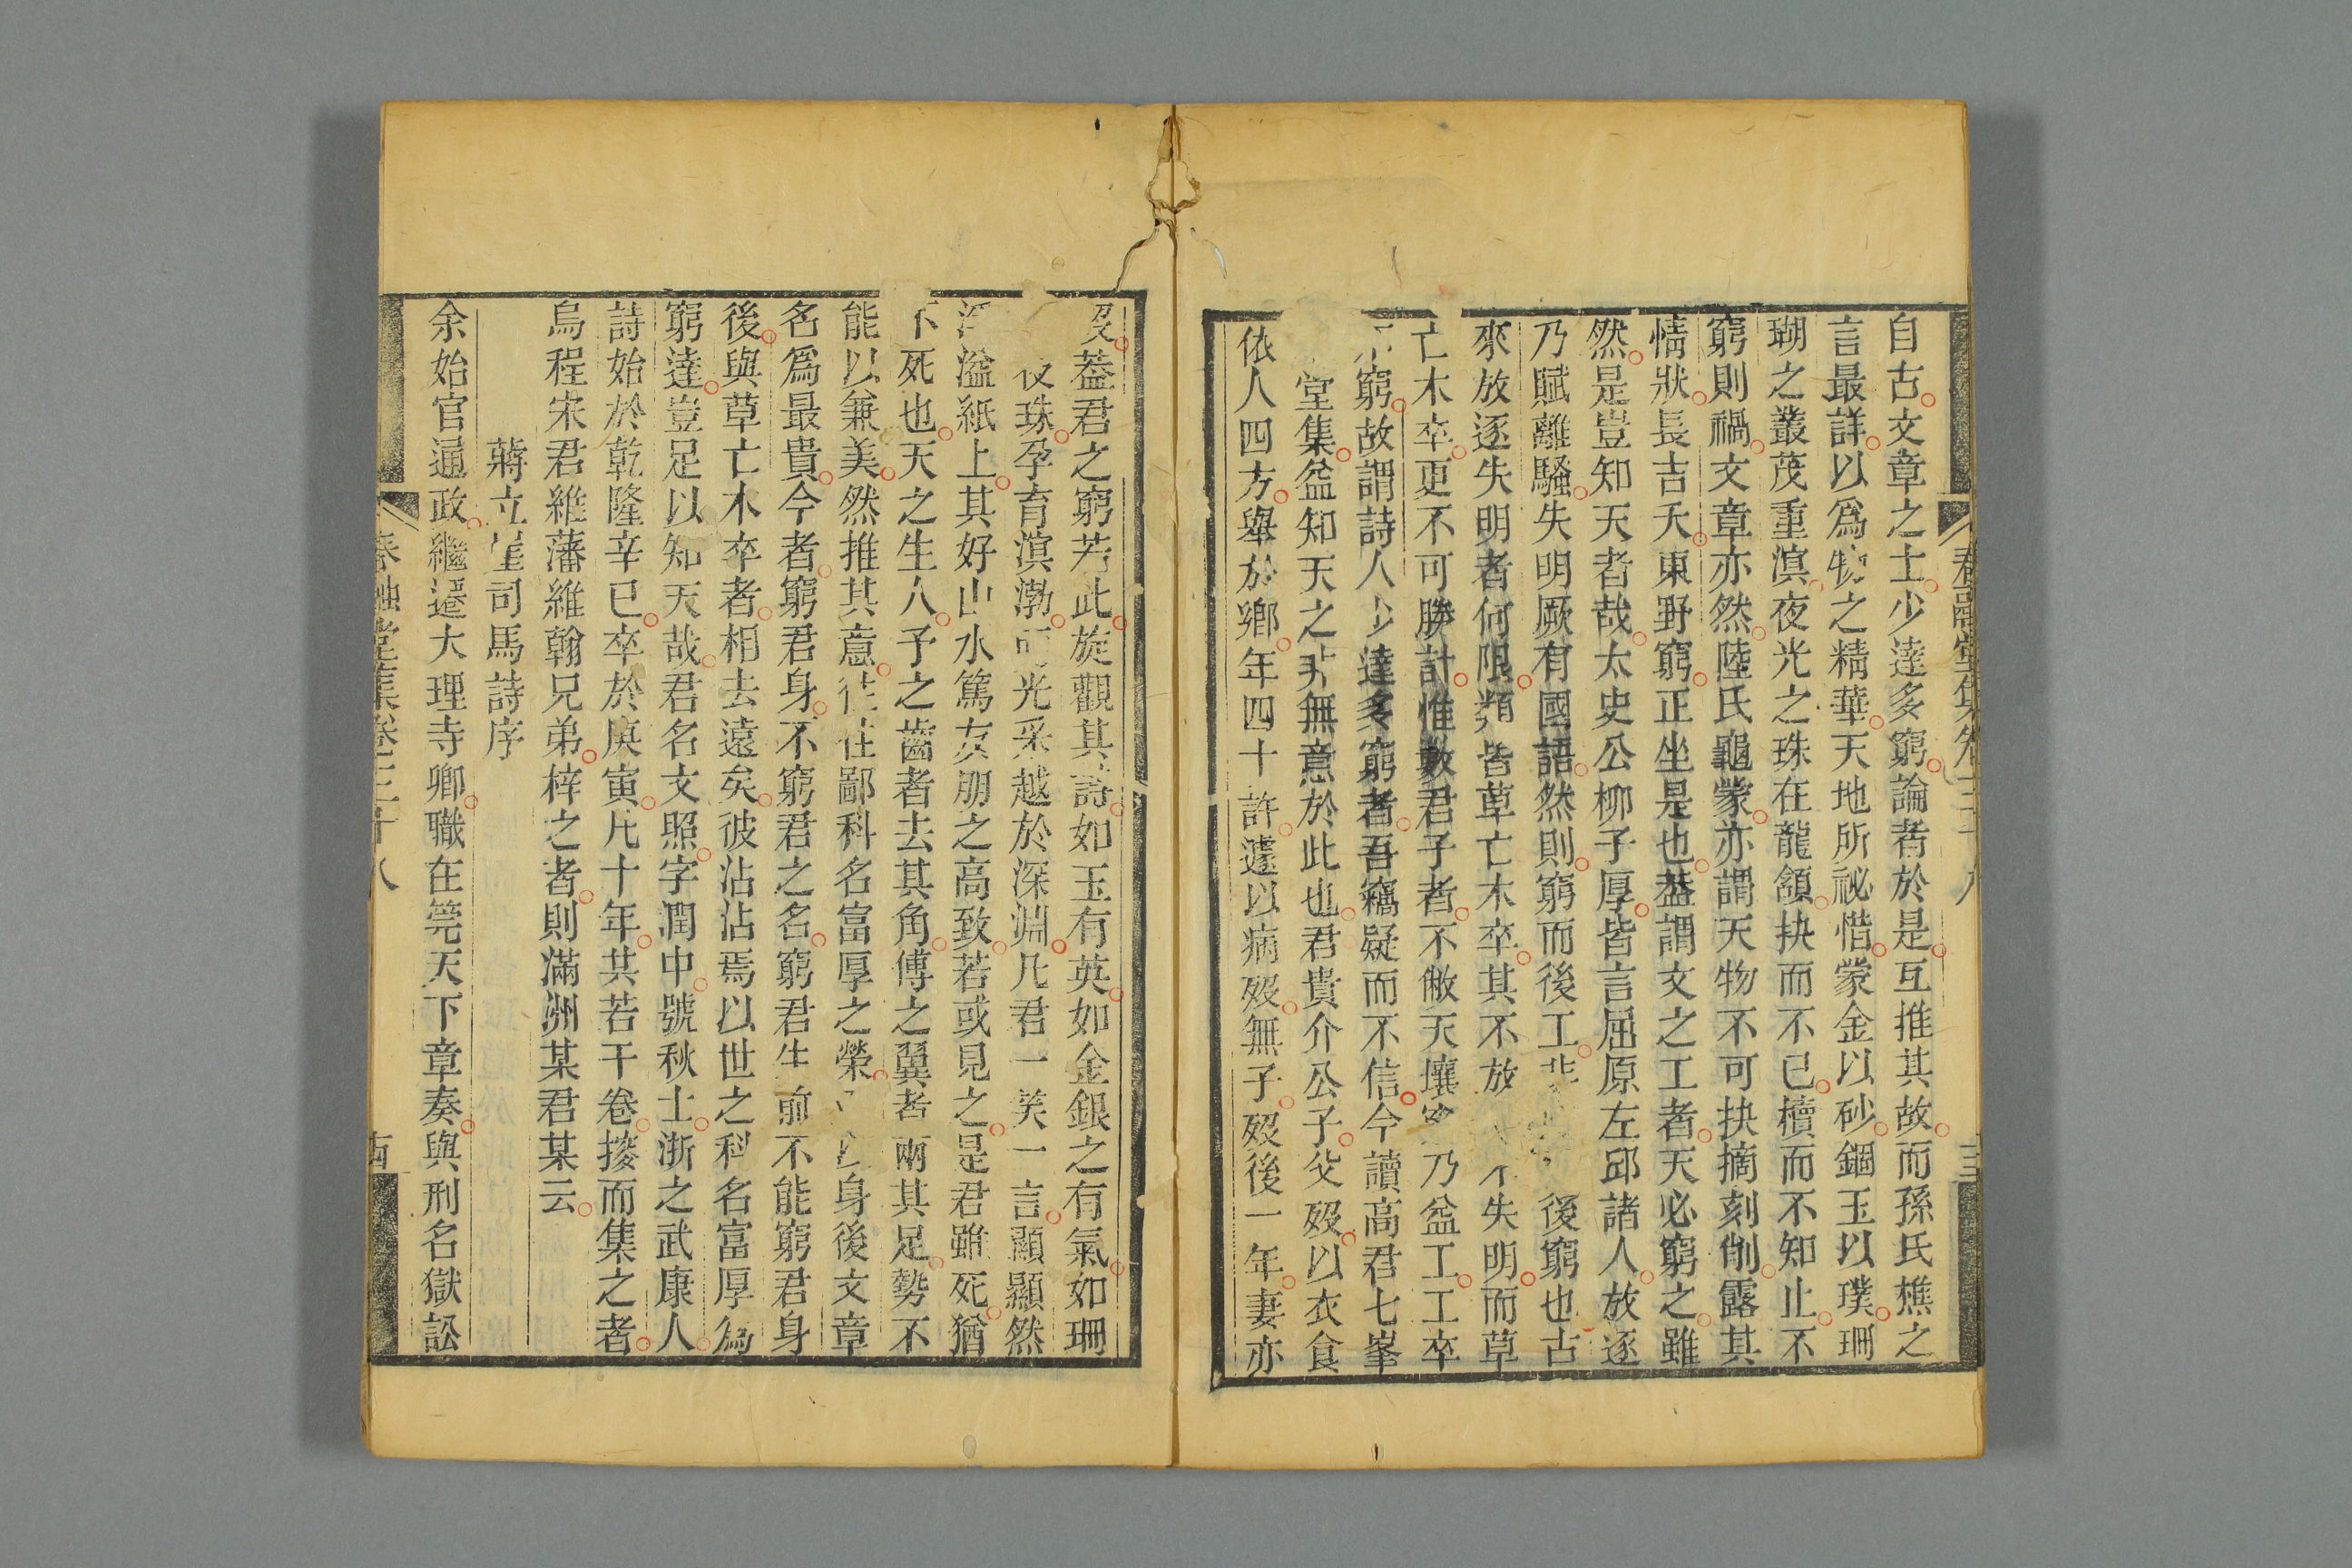 自古文章之士少達多窮論者於是互推其故而孫氏樵之
言最詳以爲物之精華天地所祕惜蒙金以砂錮玉以璞珊
瑚之叢茂重溟夜光之珠在龍頷抉而不已櫝而不知止不
窮則禍文章亦然陸氏龜蒙亦謂天物不可抉摘刻削露其
情狀長吉夭東野窮正坐是也葢謂文之工者天必窮之雖
然是豈知天者哉太史公柳子厚皆言屈原左邱諸人放逐
乃賦離騷失明厥有國語然則窮而後工非後窮也古
來放逐失明者何限類皆草亡木卒其不放不失明而草
亡木卒更不可勝計惟數君子者不敝天壤窮乃益工工卒
不窮故謂詩人少達多窮者吾竊疑而不信今讀高君七峯
堂集益知天之无無意於此也君貴介公子父歿以衣食
依人四方舉於鄉年四十許遽以病歿無子歿後一年妻亦
歿葢君之窮若此旋觀其詩如玉有英如金銀之有氣如珊
夜珠孕育溟渤而光采越於深淵凡君一笑一言顯顯然
溢紙上其好山水篤友朋之高致若或見之是君雖死猶
不死也天之生人予之齒者去其角傅之翼者兩其足勢不
能以兼美然推其意往往鄙科名富厚之榮以身後文章
名爲最貴今者窮君身不窮君之名窮君生前不能窮君身
後與草亡木卒者相去遠矣彼沾沾焉以世之科名富厚爲
窮達豈足以知天哉君名文照字潤中號秋士浙之武康人
詩始於乾隆辛巳卒於庚寅凡十年共若干卷搂而集之者
烏程宋君維藩維翰兄弟梓之者則滿洲某君某云
蔣立崖司馬詩序
余始官通政繼遷大理寺卿職在筦天下章奏與刑名獄訟
春融堂集卷三十八